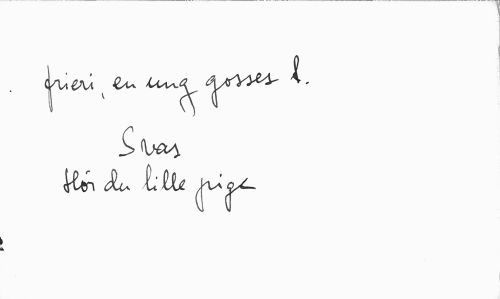 frieri, en ung gosses l.
Svas
Hör du lille pige